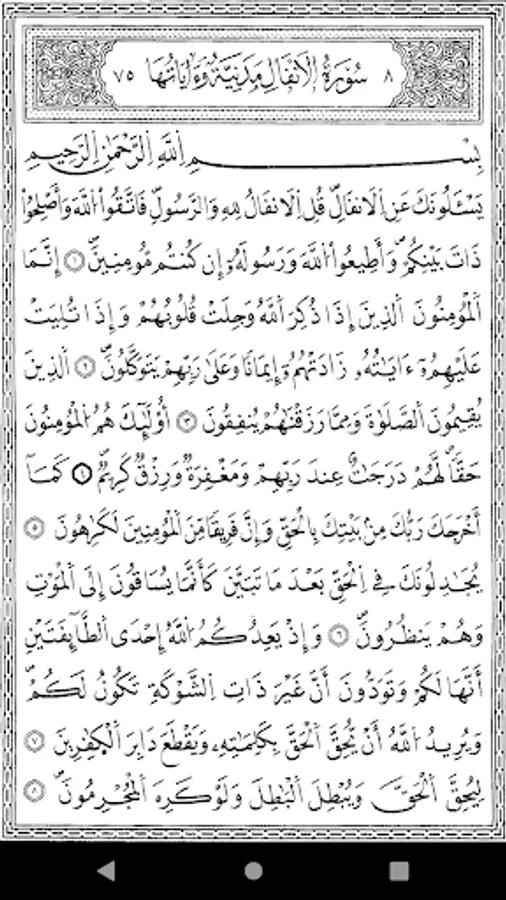 ٨ سُورَةُ الْأَنفَالِ مَدَنِيَّةٌ وَءَايَاتُهَا ٧٥
بِسْمِ اِ۬للَّهِ اِ۬لرَّحْمَٰنِ اِ۬لرَّحِيمِ
يَسْـَٔلُونَكَ عَنِ اِ۬لَانفَالِۖ قُلِ اِ۬لَانفَالُ لِلهِ وَالرَّسُولِۖ فَاتَّقُوا۟ اُ۬للَّهَ وَأَصْلِحُوا۟
ذَاتَ بَيْنِكُمْۖ وَأَطِيعُوا۟ اُ۬للَّهَ وَرَسُولَهُۥٓ إِن كُنتُم مُّومِنِينَۖ ١ إِنَّمَا
اَ۬لْمُومِنُونَ اَ۬لذِينَ إِذَا ذُكِرَ اَ۬للَّهُ وَجِلَتْ قُلُوبُهُمْ وَإِذَا تُلِيَتْ
عَلَيْهِمُۥٓ ءَايَٰتُهُۥ زَادَتْهُمُۥٓ إِيمَٰنًا وَعَلَىٰ رَبِّهِمْ يَتَوَكَّلُونَۖ ٢ اَ۬لذِينَ
يُقِيمُونَ اَ۬لصَّلَوٰةَ وَمِمَّا رَزَقْنَٰهُمْ يُنفِقُونَۖ ٣ أُو۟لَٰٓئِكَ هُمُ اُ۬لْمُومِنُونَ
حَقّاًۖ لَّهُمْ دَرَجَٰتٌ عِندَ رَبِّهِمْ وَمَغْفِرَةٌ وَرِزْقٌ كَرِيمٌۖ ٤ كَمَآ
أَخْرَجَكَ رَبُّكَ مِنۢ بَيْتِكَ بِالْحَقِّ وَإِنَّ فَرِيقًا مِّنَ اَ۬لْمُومِنِينَ لَكَٰرِهُونَ ٥
يُجَٰدِلُونَكَ فِے اِ۬لْحَقِّ بَعْدَ مَا تَبَيَّنَ كَأَنَّمَا يُسَاقُونَ إِلَى اَ۬لْمَوْتِ
وَهُمْ يَنظُرُونَۖ ٦ وَإِذْ يَعِدُكُمُ اُ۬للَّهُ إِحْدَى اَ۬لطَّآئِفَتَيْنِ
أَنَّهَا لَكُمْ وَتَوَدُّونَ أَنَّ غَيْرَ ذَاتِ اِ۬لشَّوْكَةِ تَكُونُ لَكُمْۖ
وَيُرِيدُ اُ۬للَّهُ أَنْ يُّحِقَّ اَ۬لْحَقَّ بِكَلِمَٰتِهِۦ وَيَقْطَعَ دَابِرَ اَ۬لْكٰ۪فِرِينَ ٧
لِيُحِقَّ اَ۬لْحَقَّ وَيُبْطِلَ اَ۬لْبَٰطِلَ وَلَوْ كَرِهَ اَ۬لْمُجْرِمُونَۖ ٨